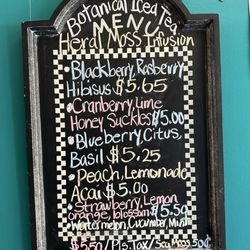 Botanical Iced Tea
MENU
Herbal Moss Infusion
• Blackberry, Rasberry
Hibisus $5.65
• Cranberry, Lime
Honey Suckles $5.00
• Blueberry, Citrus,
Basil $5.25
• Peach, Lemonade
Acai $5.00
Strawberry, Lemon
orange, blossom $5.50
• Watermelon, Cucumber, Mint
$5.50 / Pls. Tax / Sea Moss 50¢